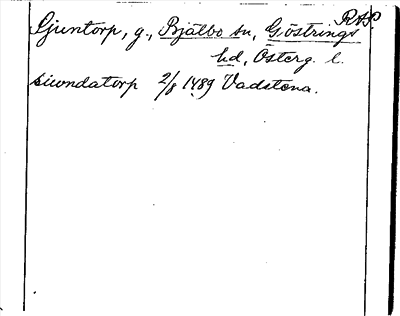 RAP.
Ljuntorp, g., Bjälbo sn, Göstrings
hd, Österg. l.
siwndatorp 2/8 1489 Vadstena.